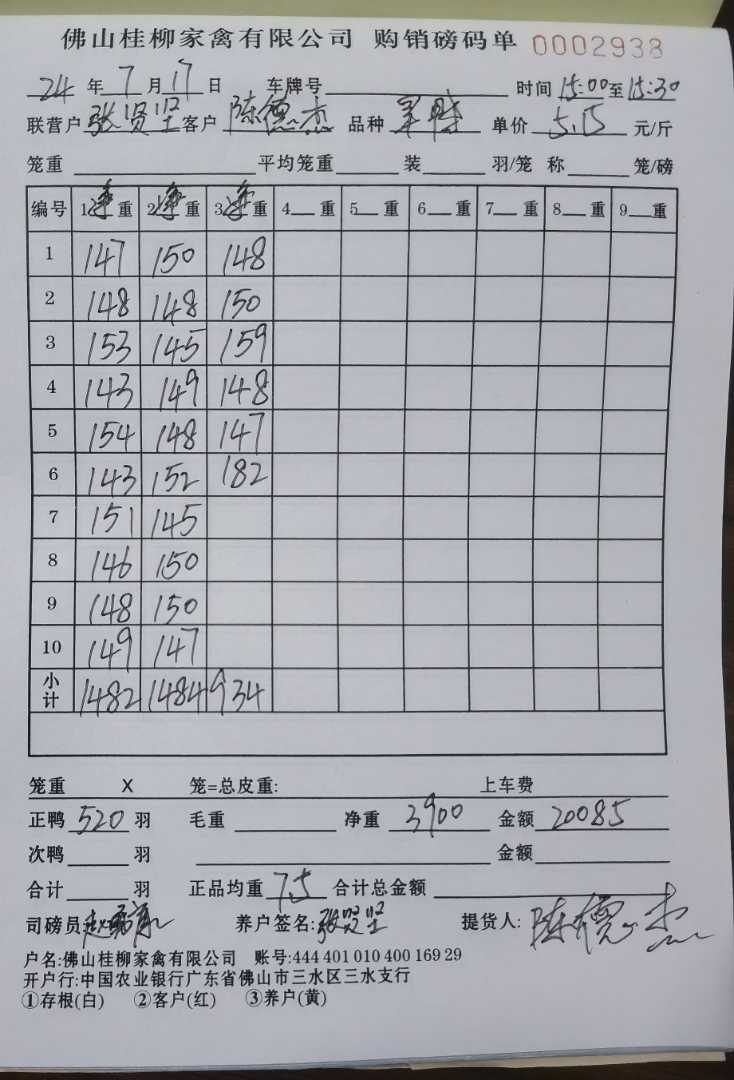 佛山桂柳家禽有限公司 购销磅码单 0002938
24 年 7 月 17 日 车牌号 时间 15:00 至 15:30
联营户 张贤坚 客户 陈德杰 品种 单价 5.15 元/斤
笼重 平均笼重 装 羽/笼 称 笼/磅
编号 1净重 2净重 3净重 4 重 5 重 6 重 7 重 8 重 9 重
1 147 150 148
2 148 148 150
3 153 145 159
4 143 149 148
5 154 148 147
6 143 152 182
7 151 145
8 146 150
9 148 150
10 149 147
小计 1482 1484 934
笼重 X 笼=总皮重: 上车费
正鸭 520 羽 毛重 净重 3900 金额 20085
次鸭 羽 金额
合计 羽 正品均重 7.5 合计总金额
司磅员: 养户签名: 张贤坚 提货人: 陈德杰
户名:佛山桂柳家禽有限公司 账号:444 401 010 400 169 29
开户行:中国农业银行广东省佛山市三水区三水支行
①存根(白) ②客户(红) ③养户(黄)